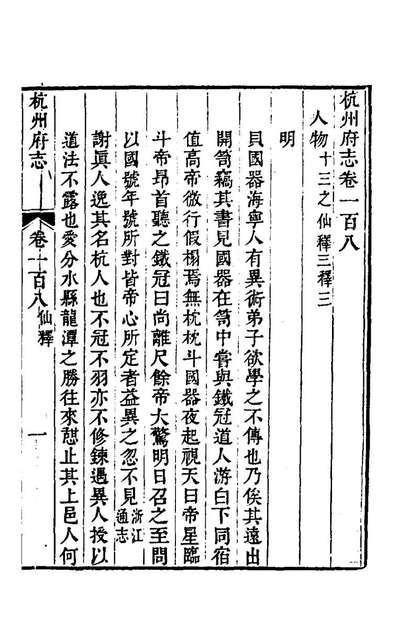 杭州府志卷一百八
人物十三之仙釋三釋三
明
貝國器海寧人有異術弟子欲學之不傳也乃俟其遠出
開笥竊其書見國器在笥中嘗與鐵冠道人游白下同宿
值高帝微行假榻焉無枕枕斗國器夜起視天曰帝星臨
斗帝昂首聽之鐵冠曰尚離尺餘帝大驚明日召之至問
以國號年號所對皆帝心所定者益異之忽不見浙江通志
謝眞人逸其名杭人也不冠不羽亦不修鍊遇異人授以
道法不露也愛分水縣龍潭之勝往來憇止其上邑人何
杭州府志
卷一百八
仙釋
一